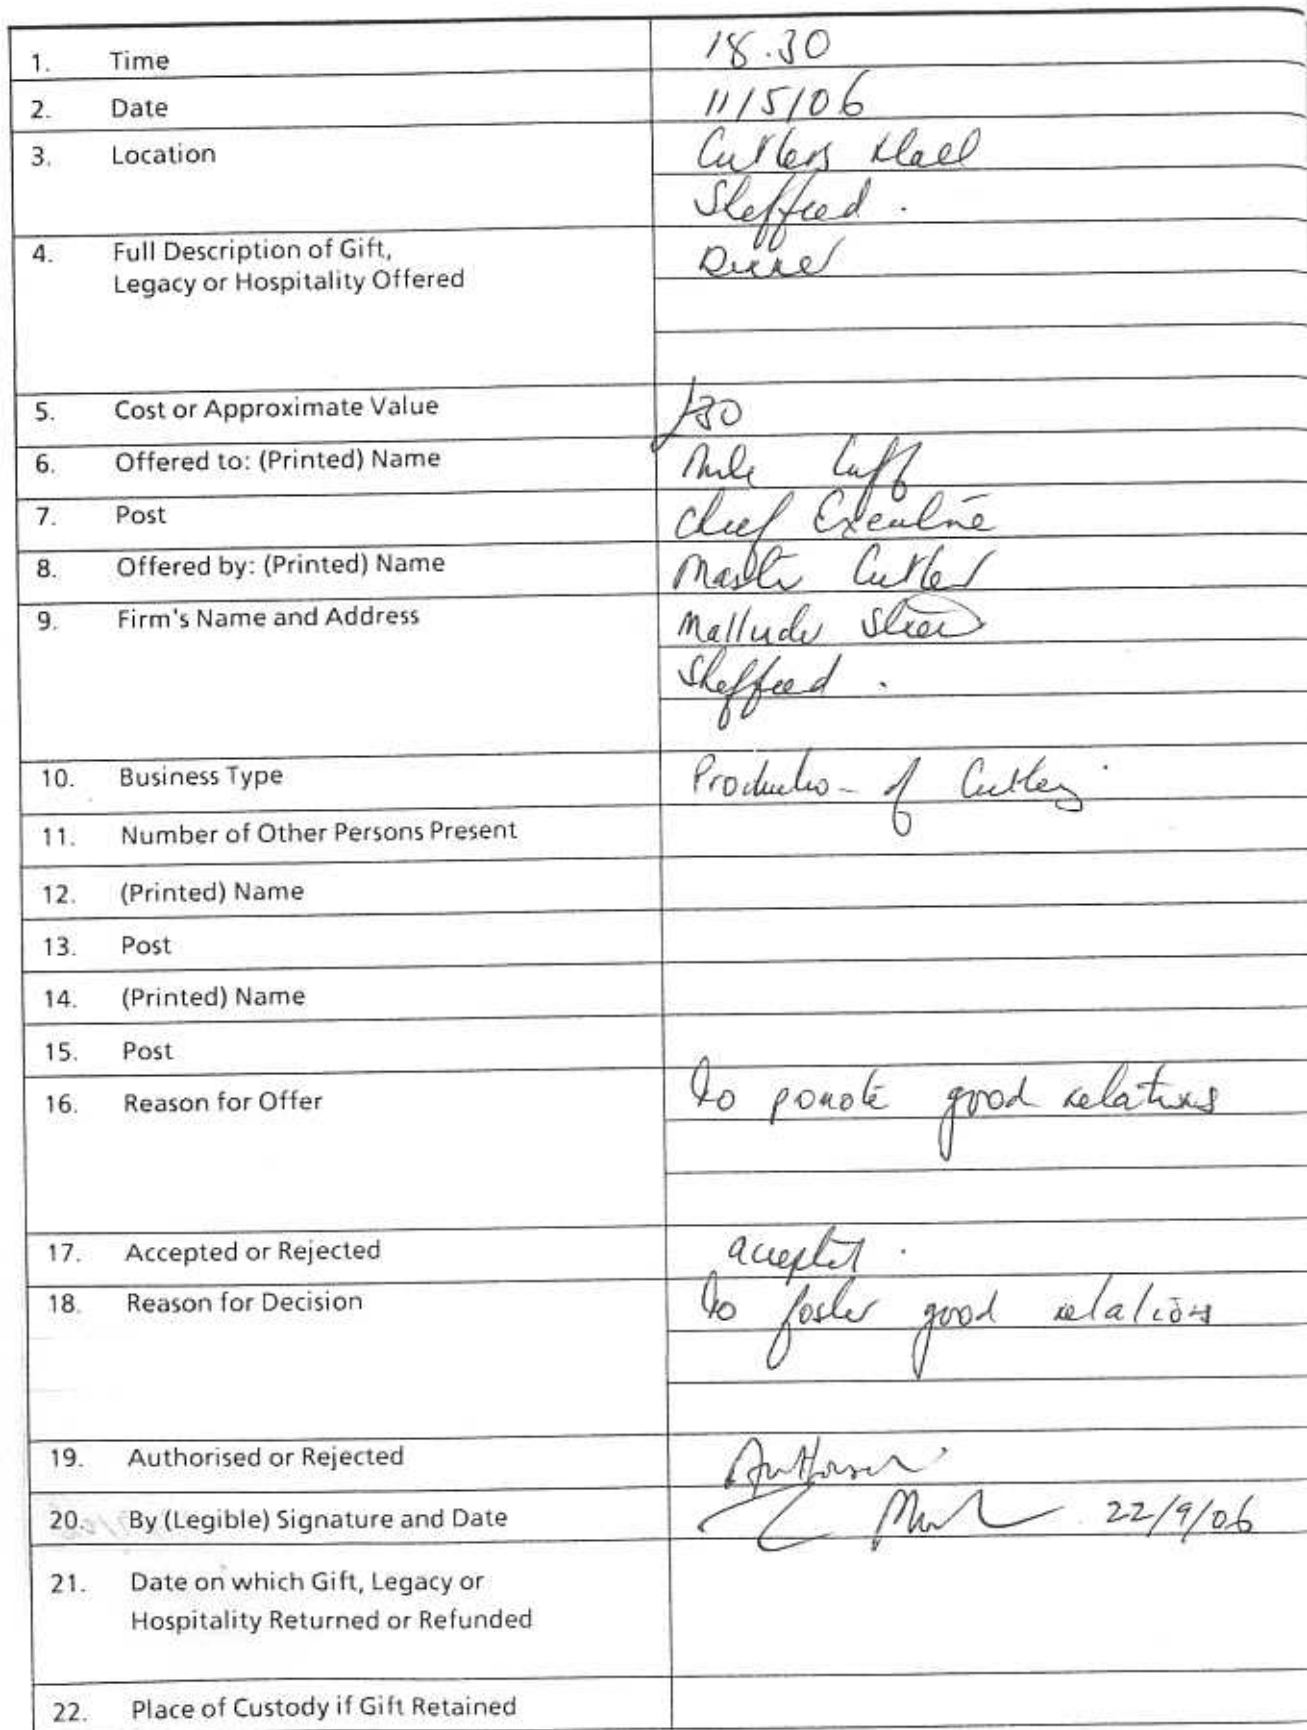 1. Time 18.30
2. Date 11/5/06
3. Location Cutlers Hall
Sheffield.
4. Full Description of Gift, Dinner
Legacy or Hospitality Offered
5. Cost or Approximate Value £30
6. Offered to: (Printed) Name Mike Cuff
7. Post Chief Executive
8. Offered by: (Printed) Name Master Cutler
9. Firm's Name and Address Street
Sheffield.
10. Business Type Production of Cutlery.
11. Number of Other Persons Present
12. (Printed) Name
13. Post
14. (Printed) Name
15. Post
16. Reason for Offer to promote good relations
17. Accepted or Rejected accepted.
18. Reason for Decision to foster good relations
19. Authorised or Rejected Authorised
20. By (Legible) Signature and Date 22/9/06
21. Date on which Gift, Legacy or
Hospitality Returned or Refunded
22. Place of Custody if Gift Retained